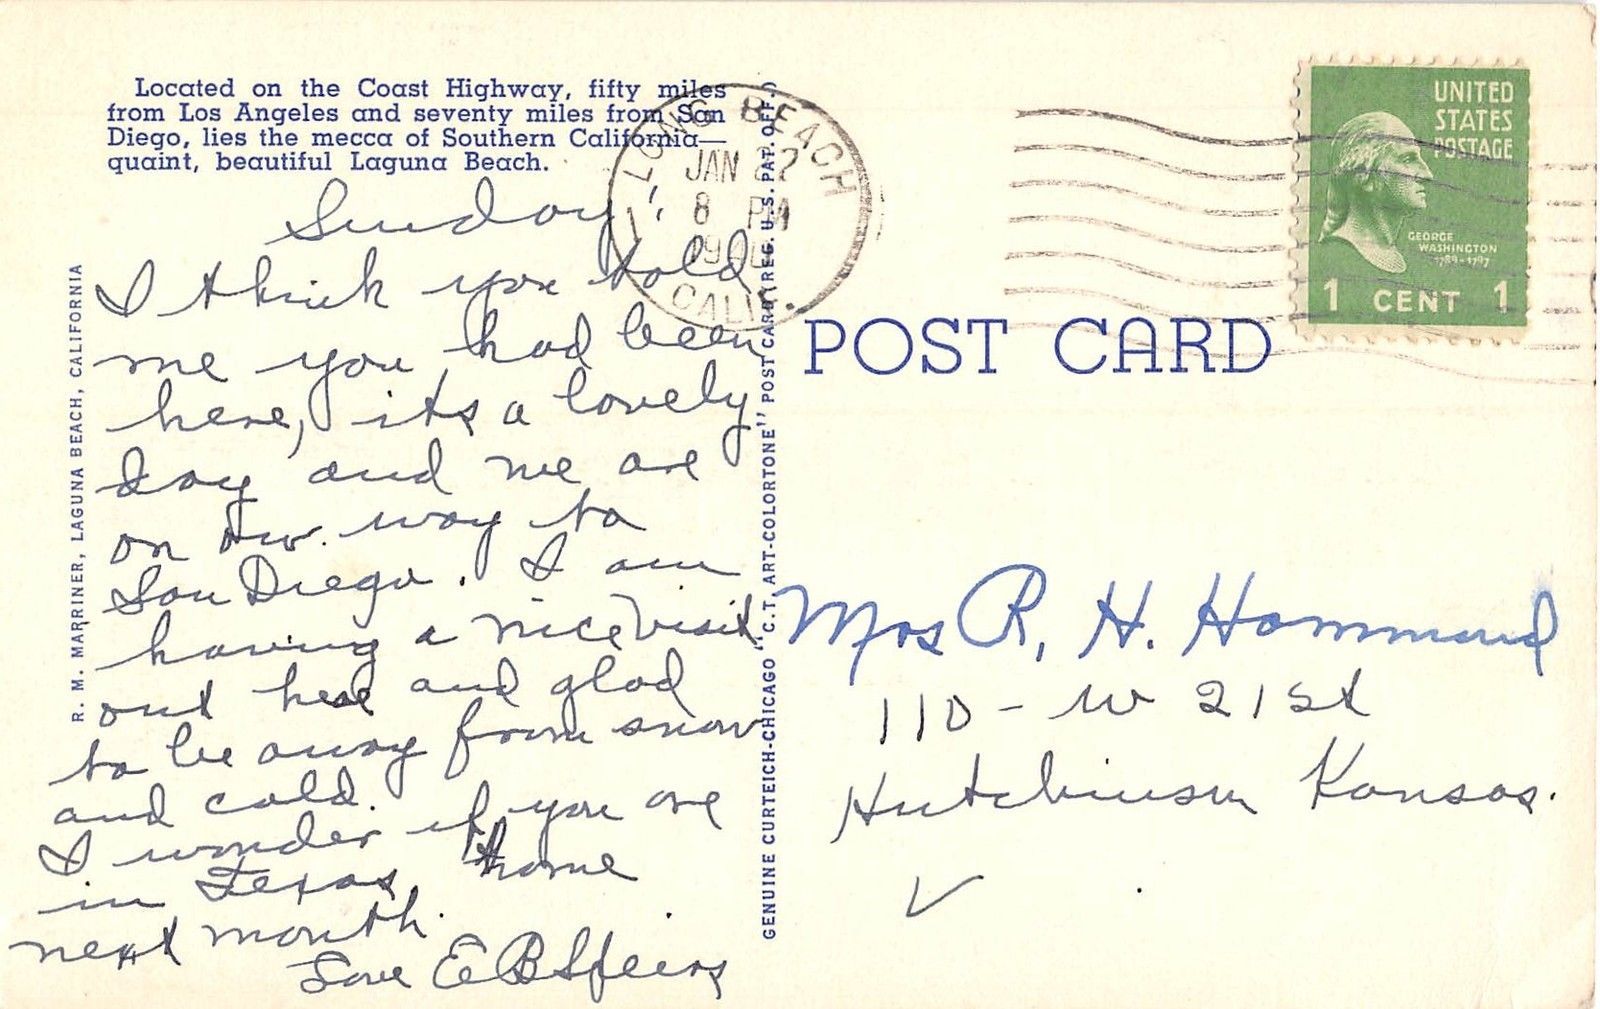 Located on the Coast Highway, fifty miles
from Los Angeles and seventy miles from San
Diego, lies the mecca of Southern California—
quaint, beautiful Laguna Beach.
Sunday,
I think you told
me you had been
here, its a lovely
day and we are
on our way to
San Diego. I am
having a nice visit
out here and glad
to be away from snow
and cold.
I wonder if you are
in Texas, home
next month.
Love E B Speirs
R. M. MARRINER, LAGUNA BEACH, CALIFORNIA
GENUINE CURTEICH-CHICAGO "C.T. ART-COLORTONE" POST CARD (REG. U.S. PAT. OFF.)
LONG BEACH
JAN 22
8 PM
CALIF.
POST CARD
UNITED
STATES
POSTAGE
GEORGE
WASHINGTON
1789-1797
1 CENT 1
Mrs R. H. Hammond
110 - W 21st
Hutchinson Kansas.